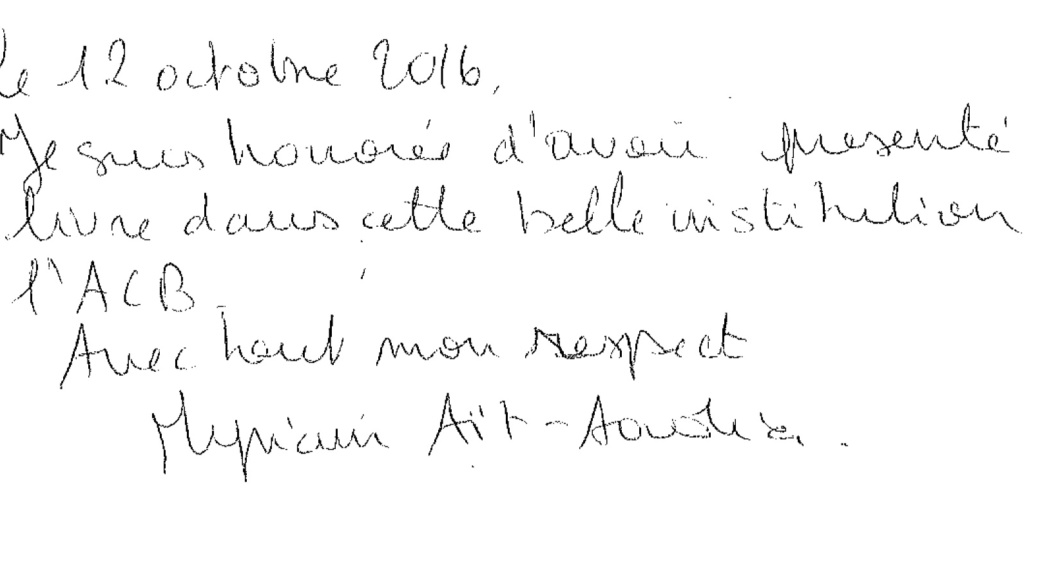 Le 12 octobre 2016.
Je suis honorée d'avoir présenté
livre dans cette belle institution
l'ACB.
Avec haut mon respect
Myriam Aït-Aoudia.